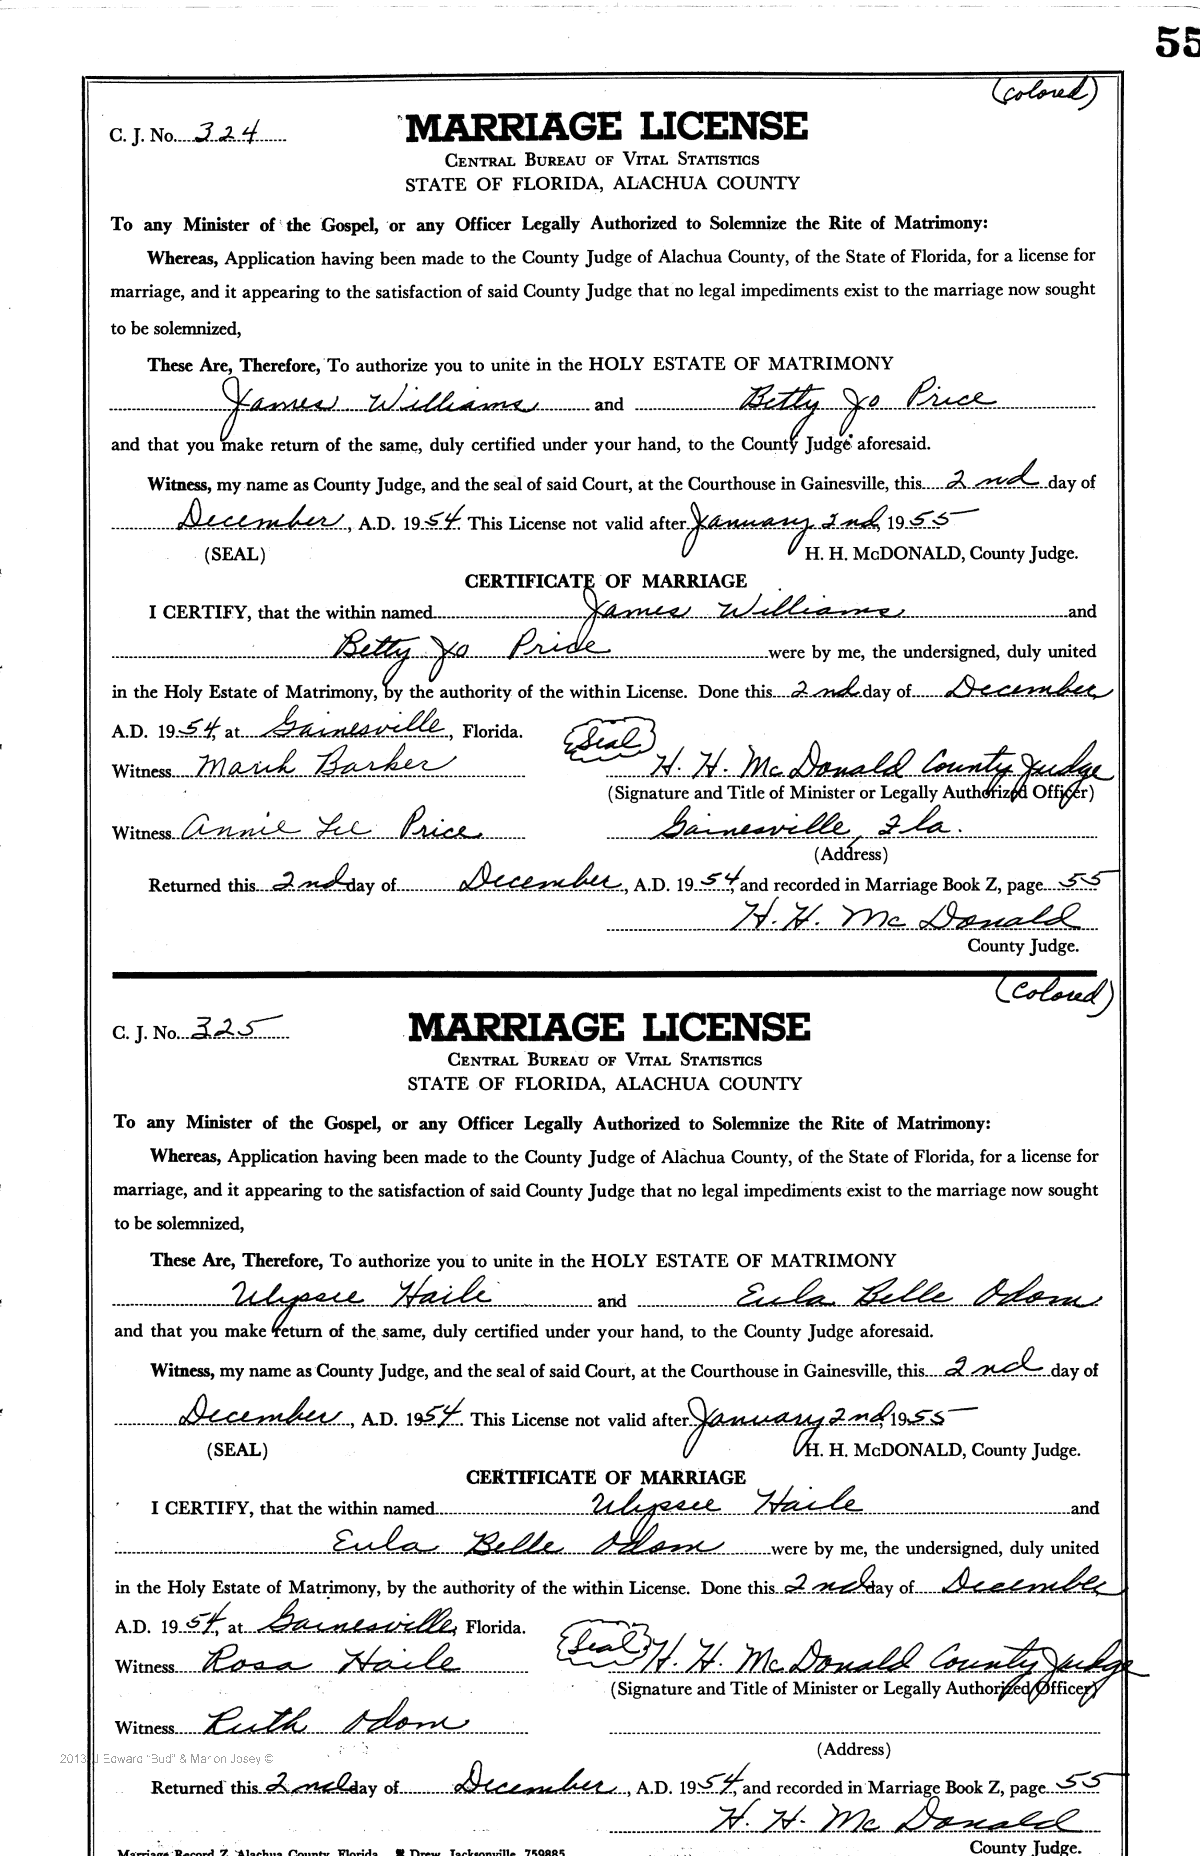 55
(Colored)
C. J. No. 324
MARRIAGE LICENSE
CENTRAL BUREAU OF VITAL STATISTICS
STATE OF FLORIDA, ALACHUA COUNTY
To any Minister of the Gospel, or any Officer Legally Authorized to Solemnize the Rite of Matrimony:
Whereas, Application having been made to the County Judge of Alachua County, of the State of Florida, for a license for
marriage, and it appearing to the satisfaction of said County Judge that no legal impediments exist to the marriage now sought
to be solemnized,
These Are, Therefore, To authorize you to unite in the HOLY ESTATE OF MATRIMONY
James Williams and Betty Jo Price
and that you make return of the same, duly certified under your hand, to the County Judge aforesaid.
Witness, my name as County Judge, and the seal of said Court, at the Courthouse in Gainesville, this 2nd day of
December, A.D. 1954. This License not valid after January 2nd, 1955
(SEAL) H. H. McDONALD, County Judge.
CERTIFICATE OF MARRIAGE
I CERTIFY, that the within named James Williams and
Betty Jo Price were by me, the undersigned, duly united
in the Holy Estate of Matrimony, by the authority of the within License. Done this 2nd day of December,
A.D. 1954, at Gainesville, Florida.
Seal
Witness Barker H. H. McDonald County Judge
(Signature and Title of Minister or Legally Authorized Officer)
Witness Annie Lee Price Gainesville, Fla.
(Address)
Returned this 2nd day of December, A.D. 1954, and recorded in Marriage Book Z, page 55
H. H. McDonald
County Judge.
(Colored)
C. J. No. 325
MARRIAGE LICENSE
CENTRAL BUREAU OF VITAL STATISTICS
STATE OF FLORIDA, ALACHUA COUNTY
To any Minister of the Gospel, or any Officer Legally Authorized to Solemnize the Rite of Matrimony:
Whereas, Application having been made to the County Judge of Alachua County, of the State of Florida, for a license for
marriage, and it appearing to the satisfaction of said County Judge that no legal impediments exist to the marriage now sought
to be solemnized,
These Are, Therefore, To authorize you to unite in the HOLY ESTATE OF MATRIMONY
Ulyssee Haile and Eula Belle Odom
and that you make return of the same, duly certified under your hand, to the County Judge aforesaid.
Witness, my name as County Judge, and the seal of said Court, at the Courthouse in Gainesville, this 2nd day of
December, A.D. 1954. This License not valid after January 2nd, 1955
(SEAL) H. H. McDONALD, County Judge.
CERTIFICATE OF MARRIAGE
I CERTIFY, that the within named Ulyssee Haile and
Eula Belle Odom were by me, the undersigned, duly united
in the Holy Estate of Matrimony, by the authority of the within License. Done this 2nd day of December,
A.D. 1954, at Gainesville, Florida.
Seal
Witness Rosa Haile H. H. McDonald County Judge
(Signature and Title of Minister or Legally Authorized Officer)
Witness Ruth Odom
(Address)
2013 J Edward "Bud" & Marion Josey ©
Returned this 2nd day of December, A.D. 1954, and recorded in Marriage Book Z, page 55
H. H. McDonald
County Judge.
Marriage Record Z, Alachua County, Florida Drew, Jacksonville 759885